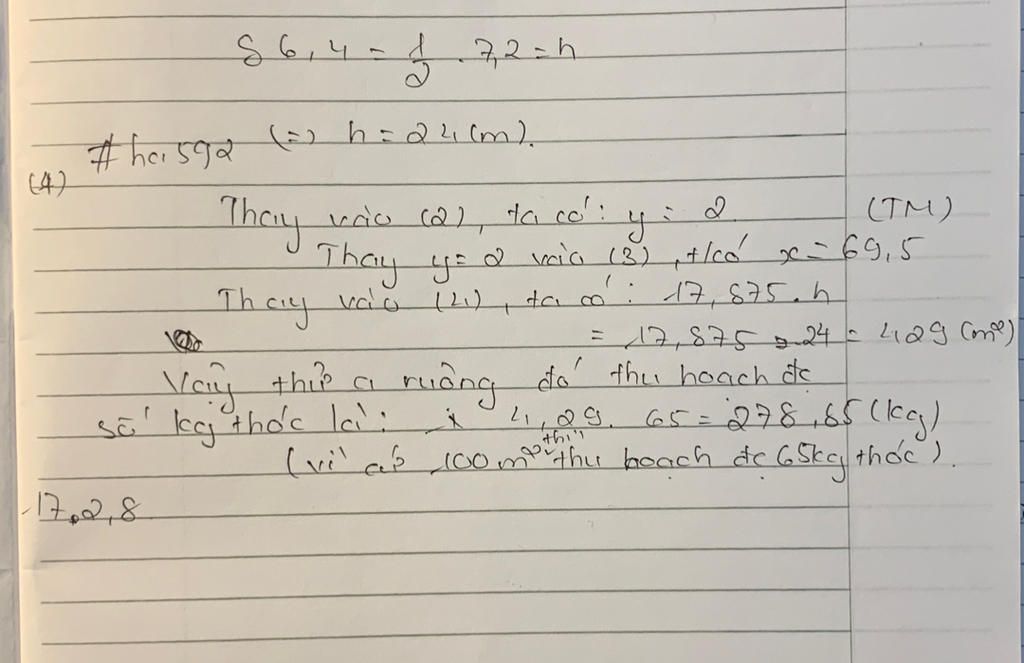 86,4 = 1/2 . 7,2 = h
#ha592 (=) h = 24 (m).
(4)
Thay vào (2), ta có: y = 2 (TM)
Thay y = 2 vào (3), t/có x = 69,5
Thay vào (4), ta có: 17,875.h
= 17,875 . 24 = 429 (m²)
Vậy thửa ruộng đó thu hoạch đc
số kg thóc là: 4,29. 65 = 278,85 (kg)
(vì cứ 100m² thì thu hoạch đc 65kg thóc).
17.2,8